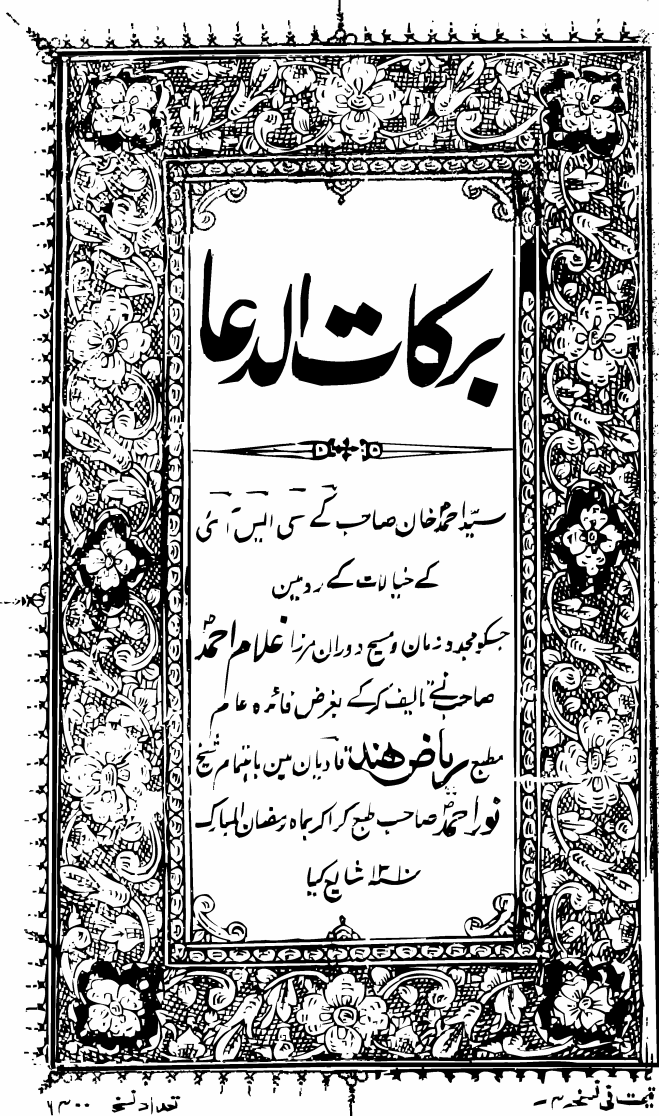 برکات الدعا
سید احمد خان صاحب کے سی ایس آئی
کے خیالات کے رد مین
جسکو مجدد زمان و مسیح دوران مرزا غلام احمد
صاحب نے تالیف کرکے بغرض فائدہ عام
مطبع ریاض ہند قادیان مین باہتمام شیخ
نور احمد صاحب طبع کرا کر بماہ رمضان المبارک
سنہ ۱۳۱۰ شایع کیا
قیمت فی نسخہ
تعداد نسخہ